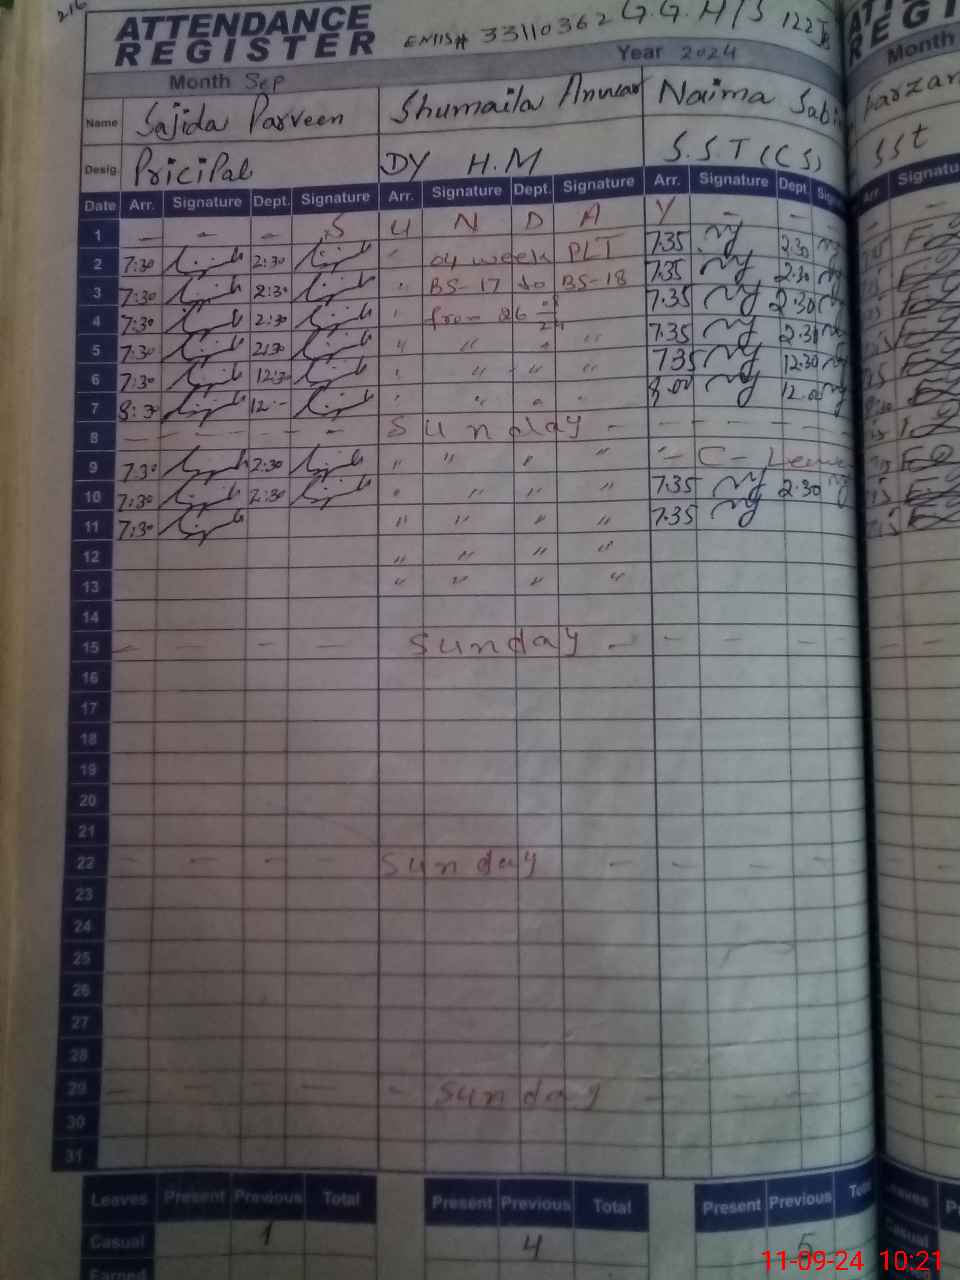 216
ATTENDANCE REGISTER EMIS# 33110362 G.G.H/S 122JB
Month Sep Year 2024
Name Sajida Parveen Shumaila Anwar Naima Sabi
Desig. Pricipal DY H.M S.S.T (CS)
Date Arr. Signature Dept. Signature Arr. Signature Dept. Signature Arr. Signature Dept.
1 - - - S U N D A Y - -
2 7:30 2:30 " 04 week PLT 7.35 2.30
3 7:30 2:30 " BS-17 to BS-18 7.35 2.30
4 7:30 2:30 " from 26 7.35 2.30
5 7:30 2:30 " " " " 7.35 2.30
6 7:30 12:30 " " " " 735 12.30
7 8:30 12:- " " " " 8.00 12.00
8 - - - - - Sunday - - - - -
9 7:30 2:30 " " " " - C - Leave
10 7:30 2:30 " " " " 7.35 2.30
11 7:30 " " " " 7.35
12 " " " "
13 " " " "
14
15 - - - - Sunday - - - - -
16
17
18
19
20
21
22 - - - - Sunday - - - -
23
24
25
26
27
28
29 - - - - Sunday - - - -
30
31
Leaves Present Previous Total Present Previous Total Present Previous
Casual 1 4 5
Earned
ATT
REGI
Month
Farzan
SST
Arr. Signatu
Leaves
Casual
11-09-24 10:21